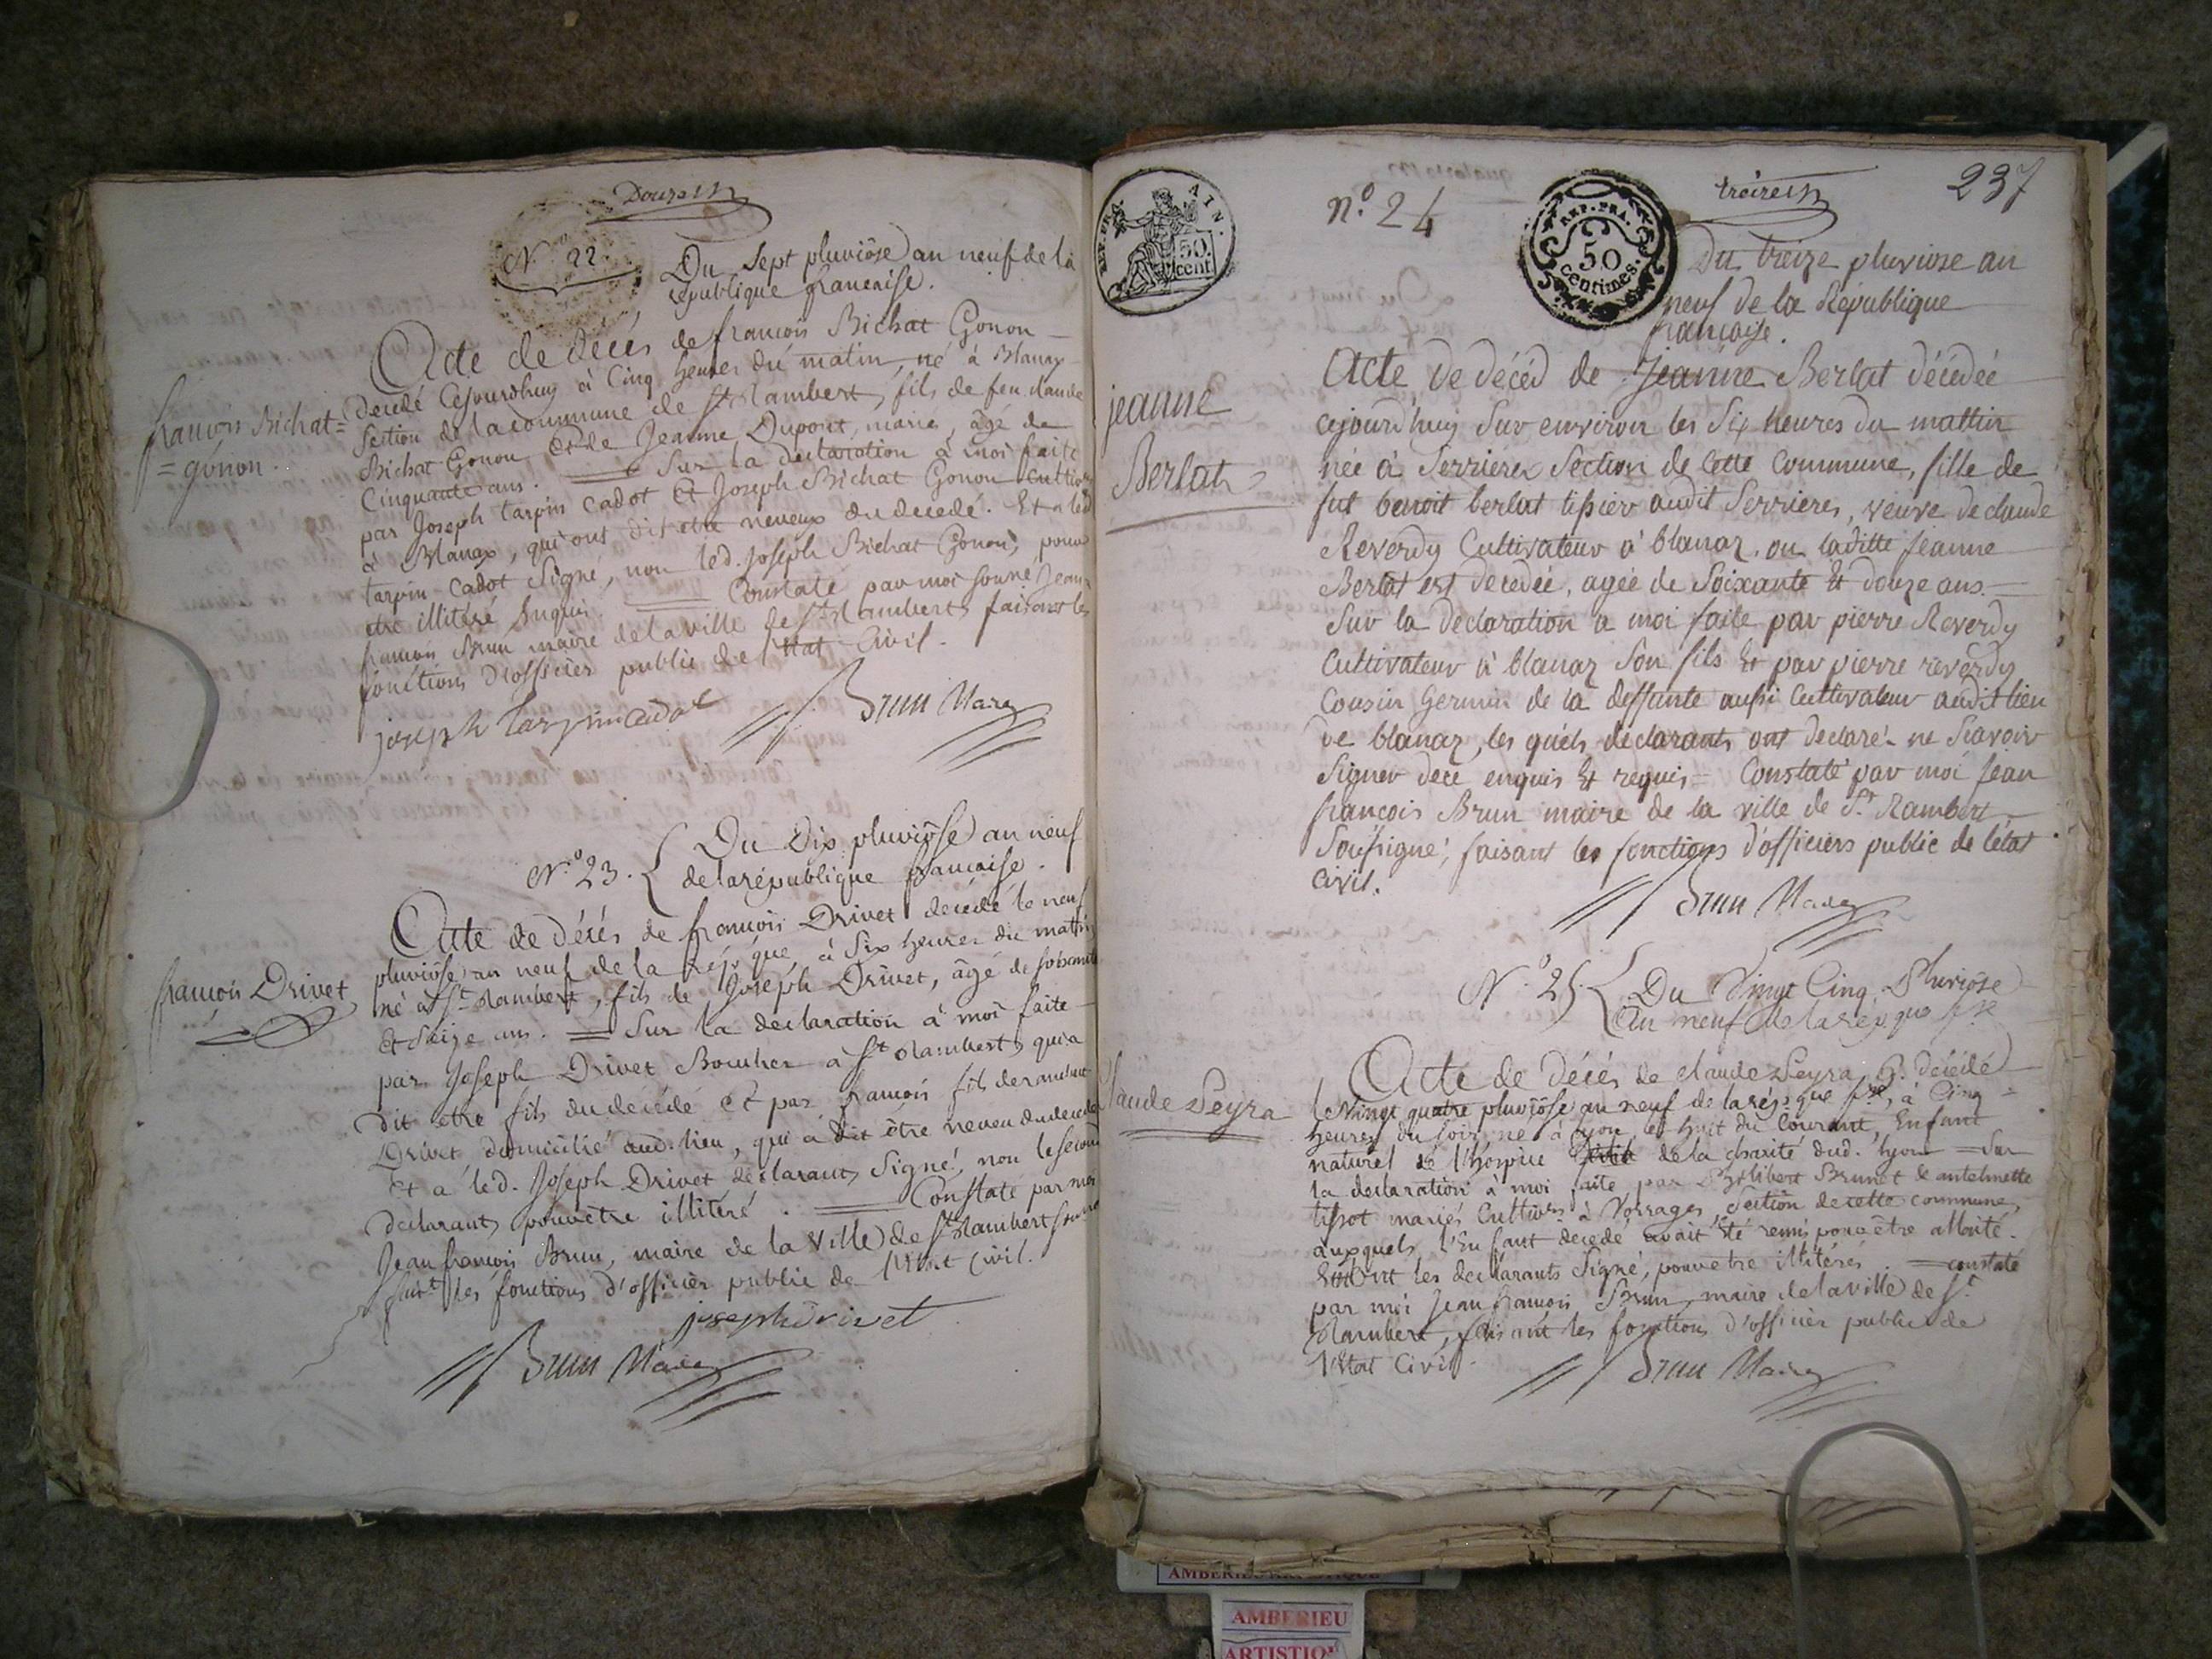 Douze
N.º 22.
Du sept pluviôse an neuf de la
république française.
Acte de décés de françois Bichat Gonon
décédé cejourdhuy à Cinq heures du matin, né à Blanaz
françois Bichat=
=gonon.
section de la commune de St Rambert, fils de feu claude
Bichat Gonon et de Jeanne Dupont, marié, âgé de
Cinquante ans. = Sur la déclaration à moi faite
par Joseph tarpin Cadot et Joseph Bichat Gonon cultivrs
à Blanaz, qui ont dit etre neveux du decedé. Et a led
tarpin Cadot Signé, non led. Joseph Bichat Gonon, pour
etre illitéré Enquis. = Constaté par moi sousné Jean
françois Brun maire de la ville de St Rambert, faisant les
fonctions d'officier public de l'état Civil.
joseph tarpin cadot
Brun Maire
N.º 23.
Du Dix pluviôse an neuf
de la république française.
Acte de décés de françois Drivet decédé le neuf
françois Drivet
pluviôse an neuf de la répque, à Six heures du matin,
né à St Rambert, fils de Joseph Drivet, âgé de soixante
et seize ans. = Sur la declaration à moi faite
par Joseph Drivet Boucher à St Rambert, qui a
dit etre fils du decédé et par françois fils de
Drivet domicilié aud. lieu, qui a dit être neveu du decedé
Et a led. Joseph Drivet déclarant Signé, non le second
declarant, pour etre illitéré. = Constaté par moi
Jean françois Brun, maire de la Ville de St Rambert sousné
faist les fonctions d'officier public de l'Etat Civil.
joseph drivet
Brun Maire
REP. FRA.
50
centimes.
50.
cent.
n.º 24
treize
237
Du treize pluviose an
neuf de la République
française.
Acte de décéd de Jeanne Berlat décédée
jeanne
Berlat
cejourd'huy sur environ les Six heures du mattin
née à Serrières Section de cette Commune, fille de
fut benoit berlat tissier audit Serrieres, veuve de claude
Reverdy Cultivateur à blanaz. ou laditte Jeanne
Berlat est decedée, agée de Soixante et douze ans. =
Sur la déclaration a moi faite par pierre Reverdy
Cultivateur à blanaz son fils et par pierre reverdy
Cousin Germain de la deffunte aussi Cultivateur audit lieu
de blanaz, les quels declarants ont declaré ne Scavoir
Signer dece enquis et requis = Constaté par moi Jean
francois Brun maire de la ville de St Rambert
Sousigné, faisant les fonctions d'officiers public de létat
Civil.
Brun Maire
N.º 25.
Du Vingt Cinq Pluviôse
An neuf de la repque fse
Acte de décés de claude Peyra décédé
Claude Peyra
le Vingt quatre pluviôse an neuf de la répque fse, à Cinq
heures du soir, né à Lyon le huit du Courant, Enfant
naturel de l'hospice de la charité dud. Lyon = Sur
la declaration à moi faite par Philibert Brunet & antelmette
tissot mariés Cultivrs à Vorrages, Section de cette commune,
auxquels l'Enfant decedé avait été remis pour etre allaité.
les declarants Signé, pour etre illitérés. = constaté
par moi Jean françois Brun, maire de la ville de St
Rambert, faisant les fonctions d'officier public de
l'Etat Civil.
Brun Maire
AMBERIEU ARTISTIQUE
AMBERIEU
ARTISTIQU